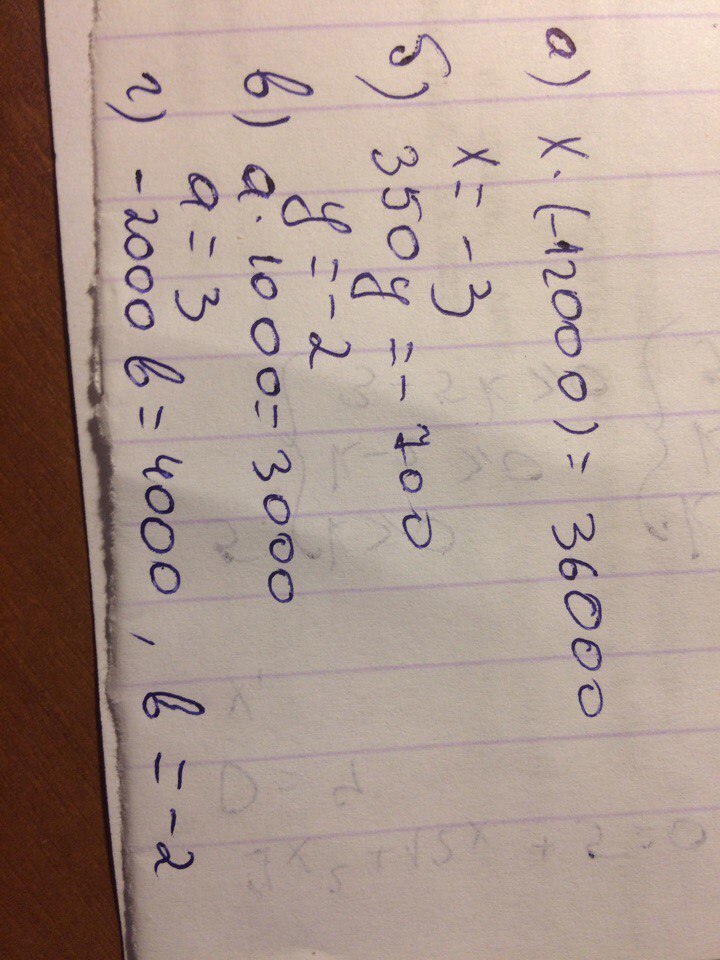 а) x·(-12000) = 36000
x = -3
б) 350y = -700
y = -2
в) a·1000 = 3000
a = 3
г) -2000b = 4000, b = -2